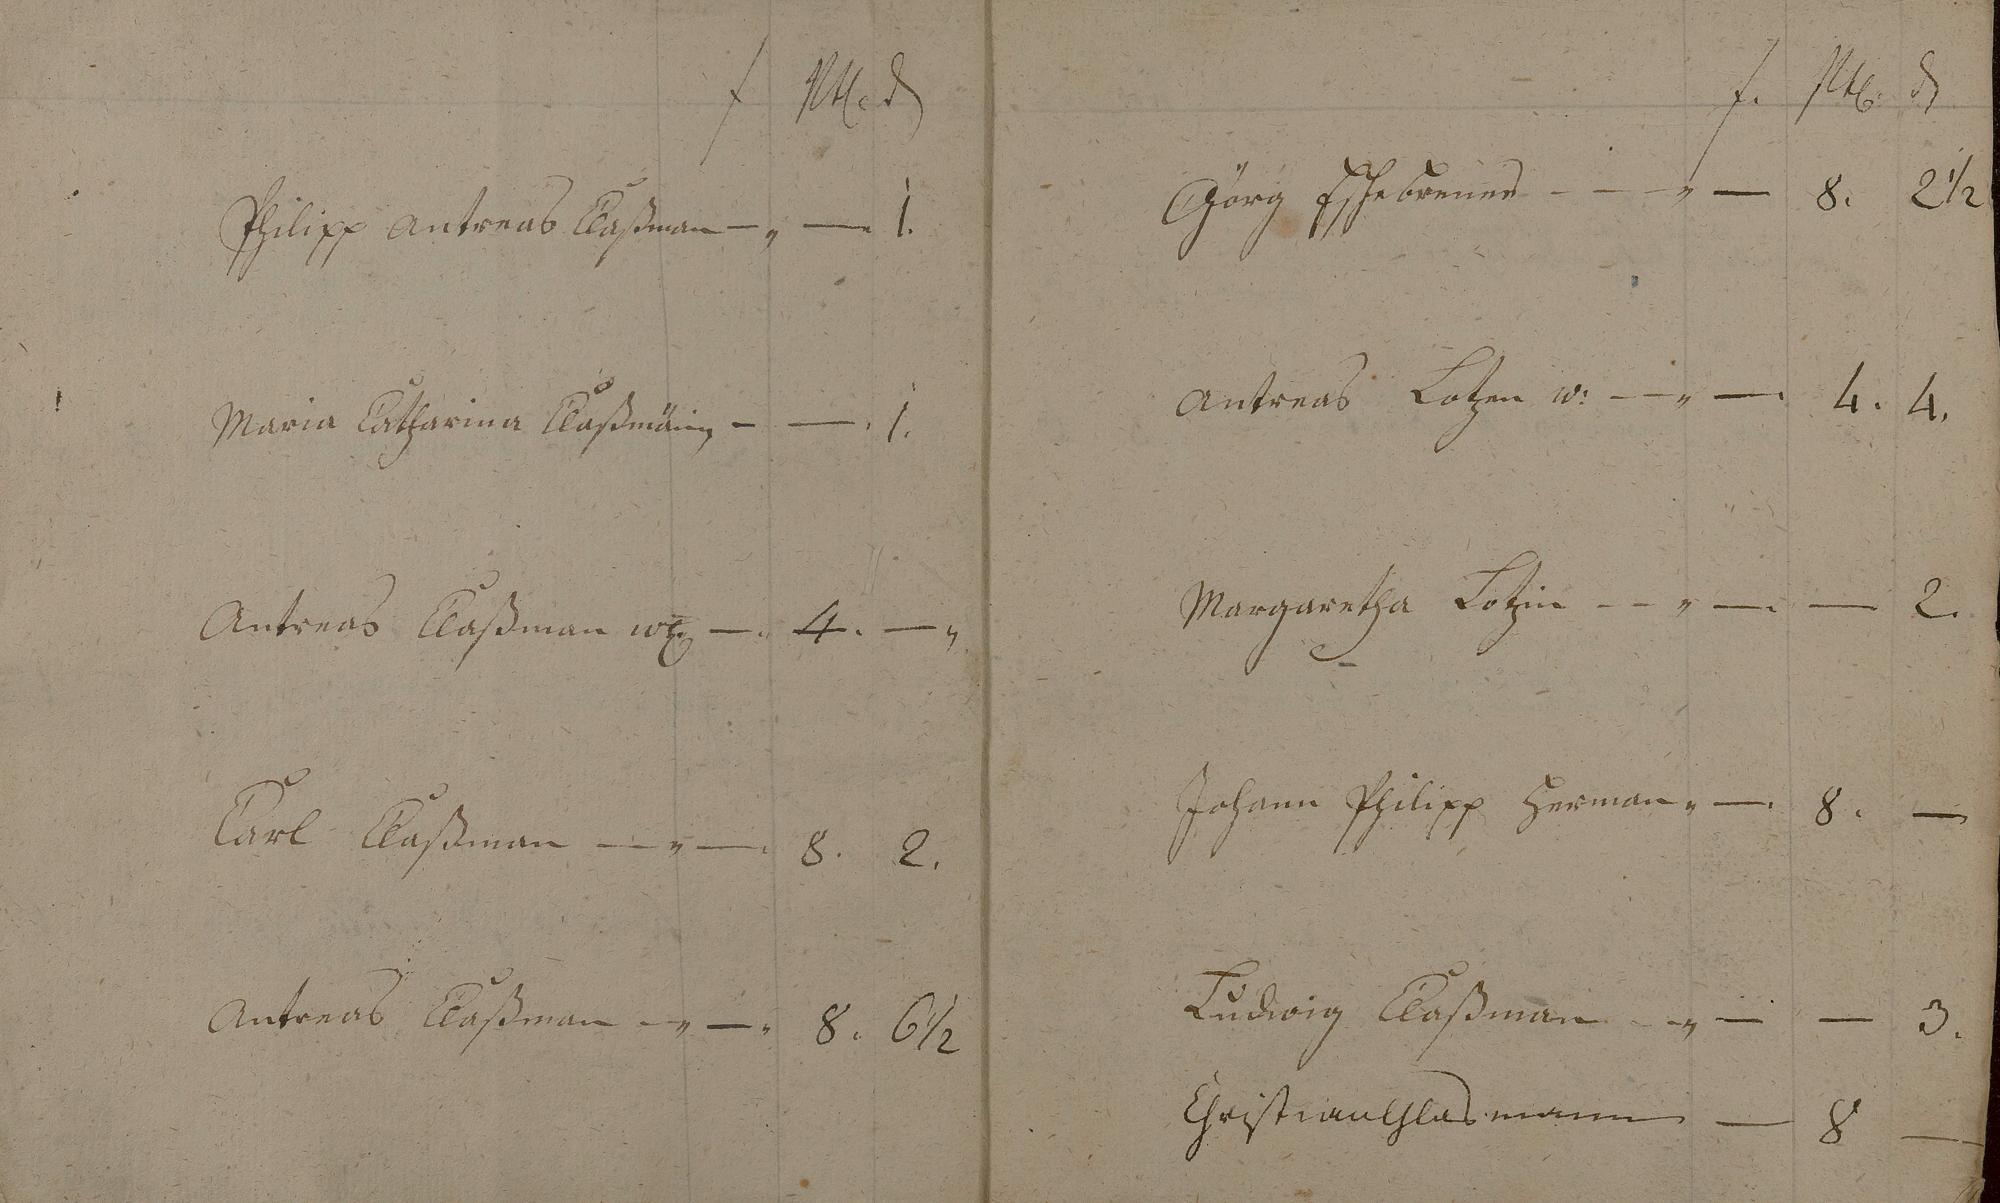 f Rtl. d
Philipp Antreas Claßman — „ — 1.
Maria Catharina Claßmänin — — . 1.
Antreas Claßman — . 4. — „
Carl Claßman — „ — . 8. 2.
Antreas Claßman — „ — . 8. 6 1/2
f. Rtl. d
Görg Eschebrener — — — „ — 8. 2 1/2
Antreas Lotzen w: — „ — . 4. 4.
Margaretha Lotzin — — „ — . — 2.
Johann Philipp Herman „ — . 8. —
Ludwig Claßman — „ — — 3.
Christian Glasmann — 8 —